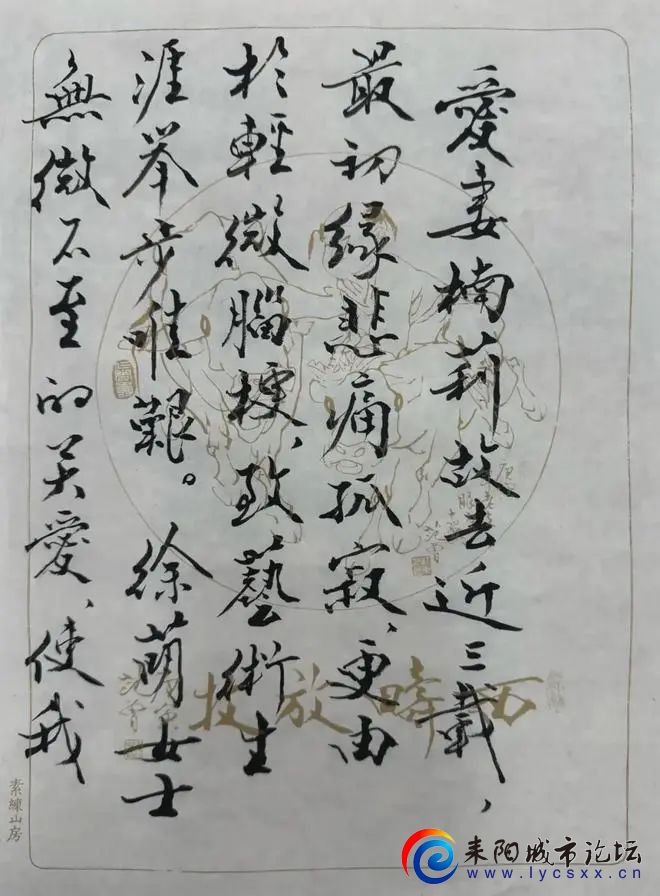 愛妻楠莉故去近三載，
最初緣悲痛孤寂、更由
於輕微腦梗、致藝術生
涯举步唯艱。徐萌女士
無微不至的关愛、使我
西疇放牧
范曾
素練山房
耒阳城市论坛
www.lycsxx.cn